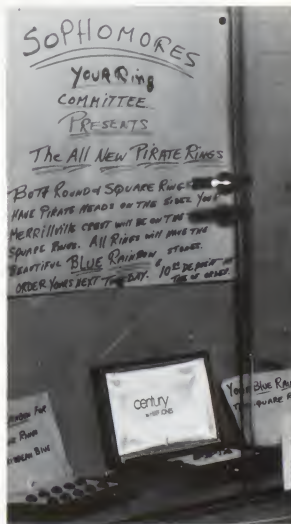 SOPHOMORES
YOUR Ring
COMMITTEE
PRESENTS
The ALL NEW PIRATE RINGS
BOTH ROUND & SQUARE RINGS
HAVE PIRATE HEADS ON THE SIDES. YOUR
MERRILLVILLE CREST WILL BE ON THE
SQUARE RINGS. ALL RINGS WILL HAVE THE
BEAUTIFUL BLUE RAINBOW STONES.
ORDER YOURS NEXT DAY. 10 DEPOSIT AT
OF ORDER.
century
FOR
BLUE
YOUR BLUE
SQUARE